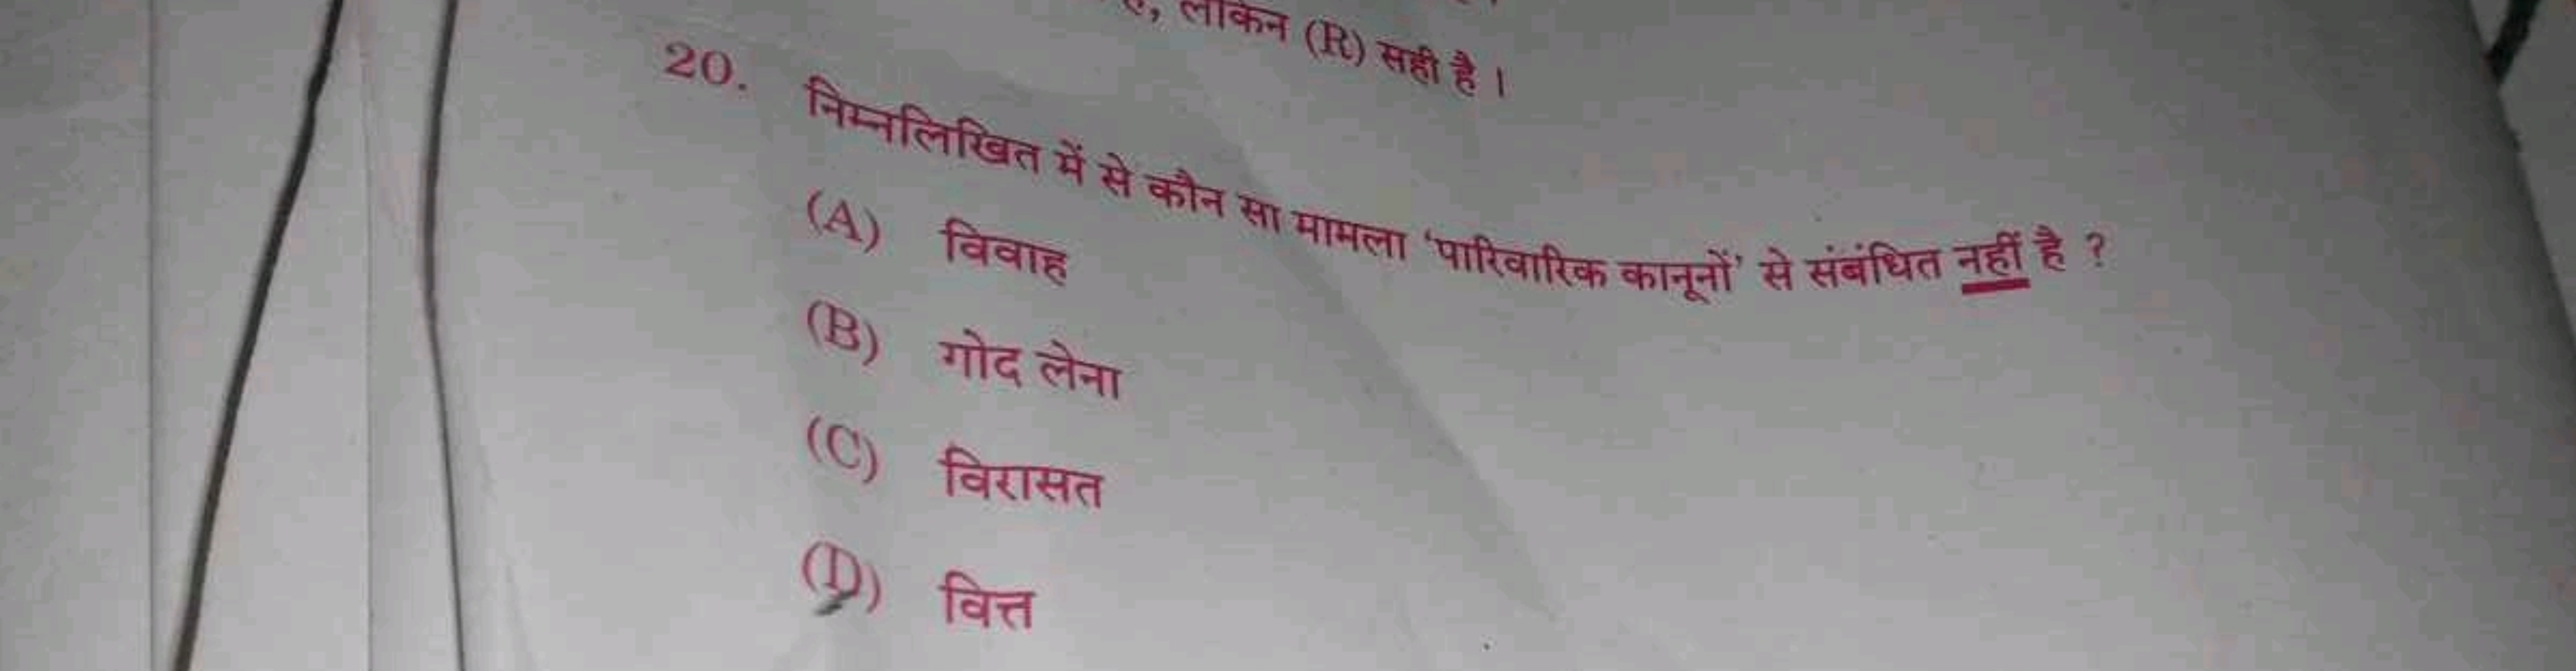 लेकिन (R) सही है ।
20. निम्नलिखित में से कौन सा मामला ‘पारिवारिक कानूनों’ से संबंधित नहीं है ?
(A) विवाह
(B) गोद लेना
(C) विरासत
(D) वित्त